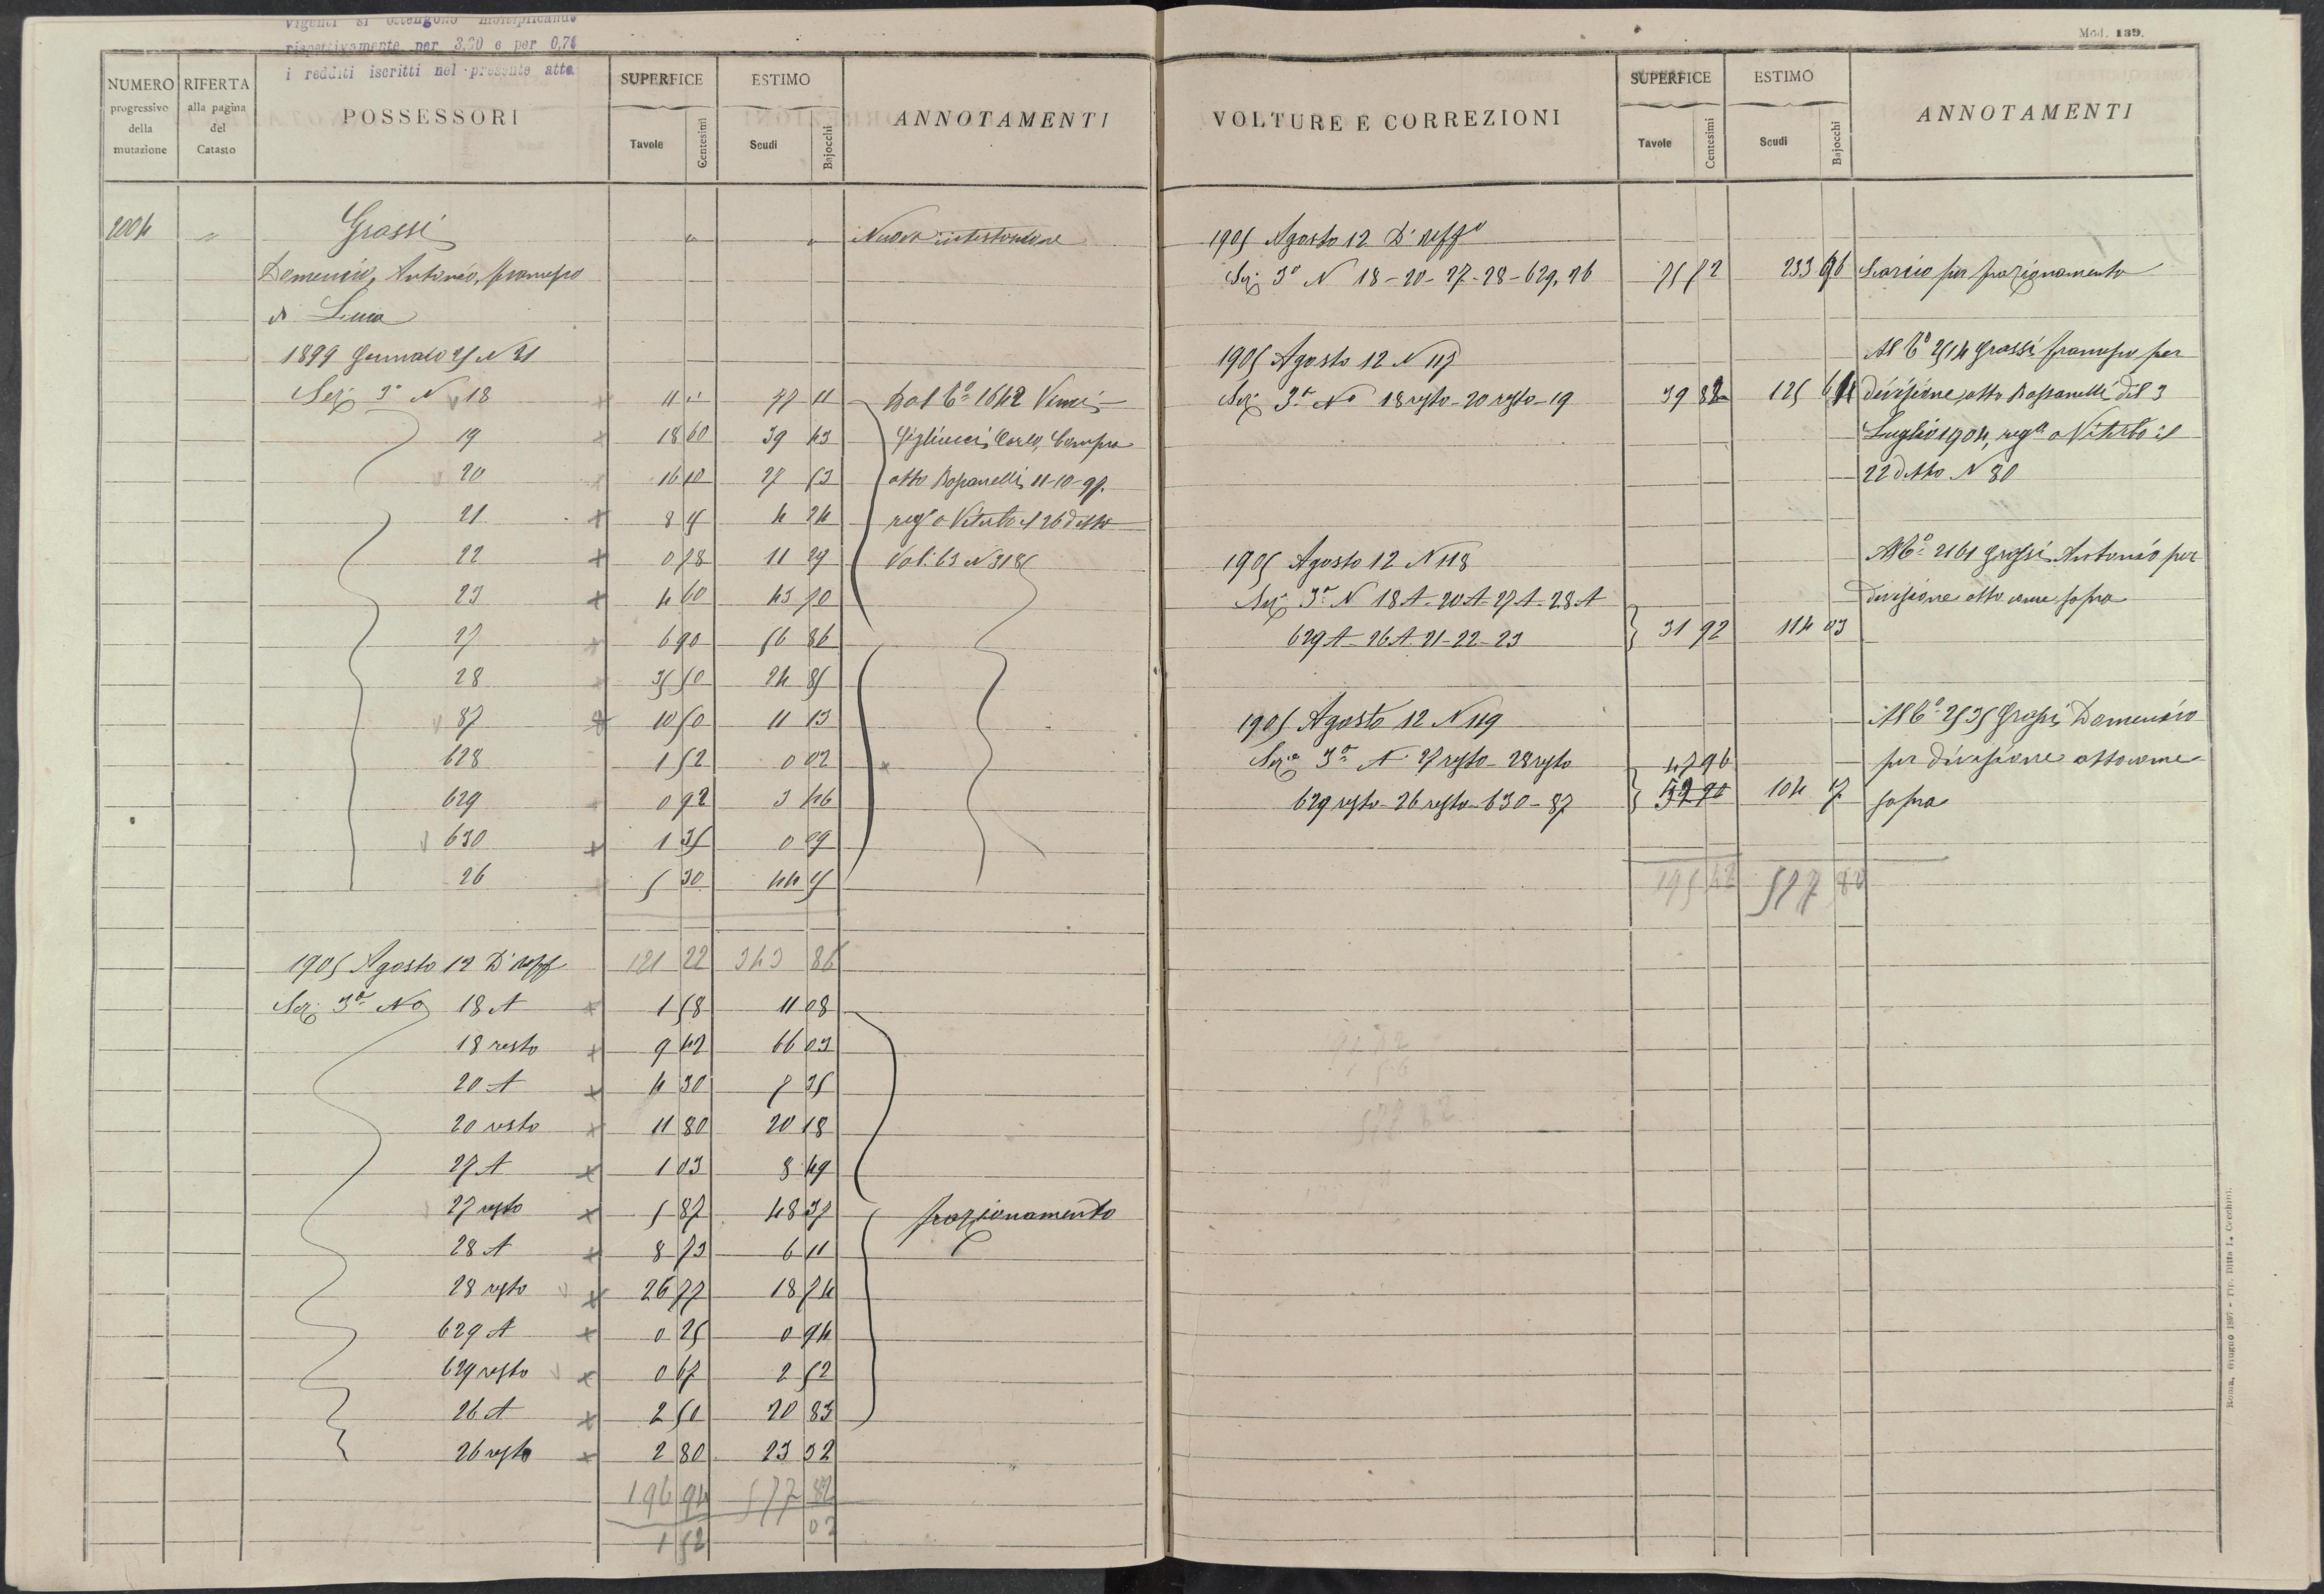 vigenti si ottengono moltiplicando
rispettivamente per 3,20 e per 0,76
i redditi iscritti nel presente atto
NUMERO progressivo della mutazione
RIFERTA alla pagina del Catasto
POSSESSORI
SUPERFICE Tavole Centesimi
ESTIMO Scudi Bajocchi
ANNOTAMENTI
2004 " Grassi " " Nuova intestazione
Domenico, Antonio, Francesco
di Luca
1899 Gennaio 25 N 21
Sez 3ª N 18 11 " 77 11 Dal Cº 1642 Vinci
19 18 60 39 43 Gigliucci Carlo, Compra
20 16 10 27 53 atto Rossanelli 11-10-97
21 8 45 4 24 regº a Viterbo il 26 detto
22 0 78 11 29 Vol. 63 N 318
23 4 60 43 70
27 6 90 56 86
28 35 50 24 85
87 10 50 11 13
628 1 52 0 02
629 0 92 3 46
630 1 35 0 09
26 5 30 44 15
121 22 343 86
1905 Agosto 12 D'uffº
Sez 3ª No 18 A 1 58 11 08
18 resto 9 42 66 03
20 A 4 30 7 35
20 resto 11 80 20 18
27 A 1 03 8 49
27 resto 5 87 48 37 frazionamento
28 A 8 73 6 11
28 resto 26 77 18 74
629 A 0 25 0 94
629 resto 0 67 2 52
26 A 2 50 20 83
26 resto 2 80 23 32
196 94 577 82
1 52 02
Mod. 139.
VOLTURE E CORREZIONI
SUPERFICE Tavole Centesimi
ESTIMO Scudi Bajocchi
ANNOTAMENTI
1905 Agosto 12 D'uffº
Sez 3ª N 18-20-27-28-629, 26 75 72 233 96 Scarico per frazionamento
1905 Agosto 12 N 117 Al Cº 2514 Grassi Francesco per
Sez 3ª No 18 resto-20 resto-19 39 82 125 64 divisione, atto Rossanelli del 3
Luglio 1904, regº a Viterbo il
22 detto N 80
1905 Agosto 12 N 118 Al Cº 2161 Grassi Antonio per
Sez 3ª N 18 A-20 A-27 A-28 A divisione atto come sopra
629 A-26 A-21-22-23 31 92 114 03
1905 Agosto 12 N 119 Al Cº 2535 Grassi Domenico
Sez 3ª N 27 resto-28 resto 47 96 per divisione atto come
629 resto-26 resto-630-87 104 17 sopra
195 42 577 80
Roma, Giugno 1897 - Tip. Ditta L. Cecchini.